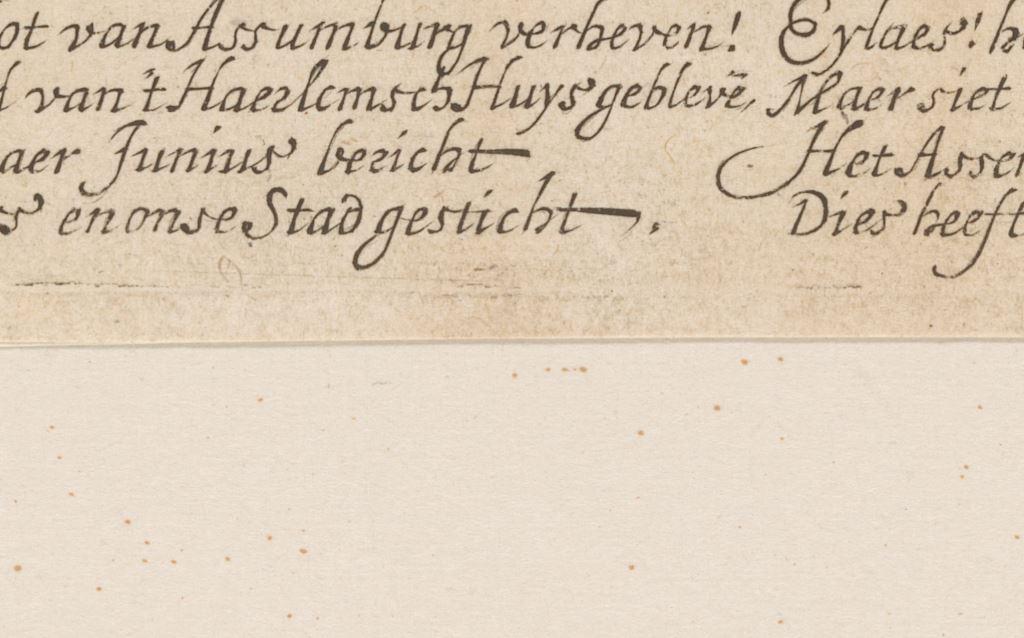 ot van Assumburg verheven! Eylaes! h
d van 't Haerlemsch Huys geblevē, Maer siet
aer Junius bericht Het Assen
s en onse Stad gesticht. Dies heeft